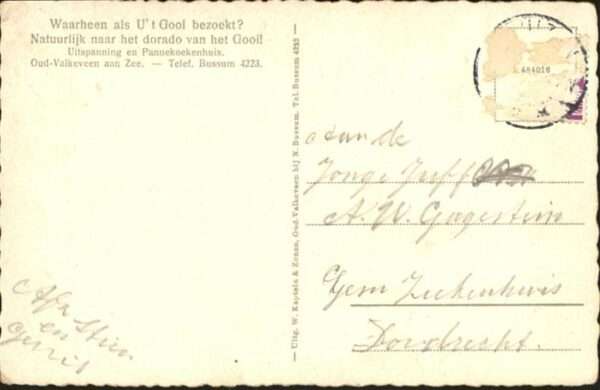 Waarheen als U 't Gooi bezoekt?
Natuurlijk naar het dorado van het Gooi!
Uitspanning en Pannekoekenhuis.
Oud-Valkeveen aan Zee. — Telef. Bussum 4223.
Uitg. W. Kaptein & Zonen, Oud-Valkeveen bij N. Bussum. Tel. Bussum 4223
484018
aan de
Jonge Juff
A. W. Gagestein
Gem Ziekenhuis
Dordrecht.
Afz Stien
en
Gerrit